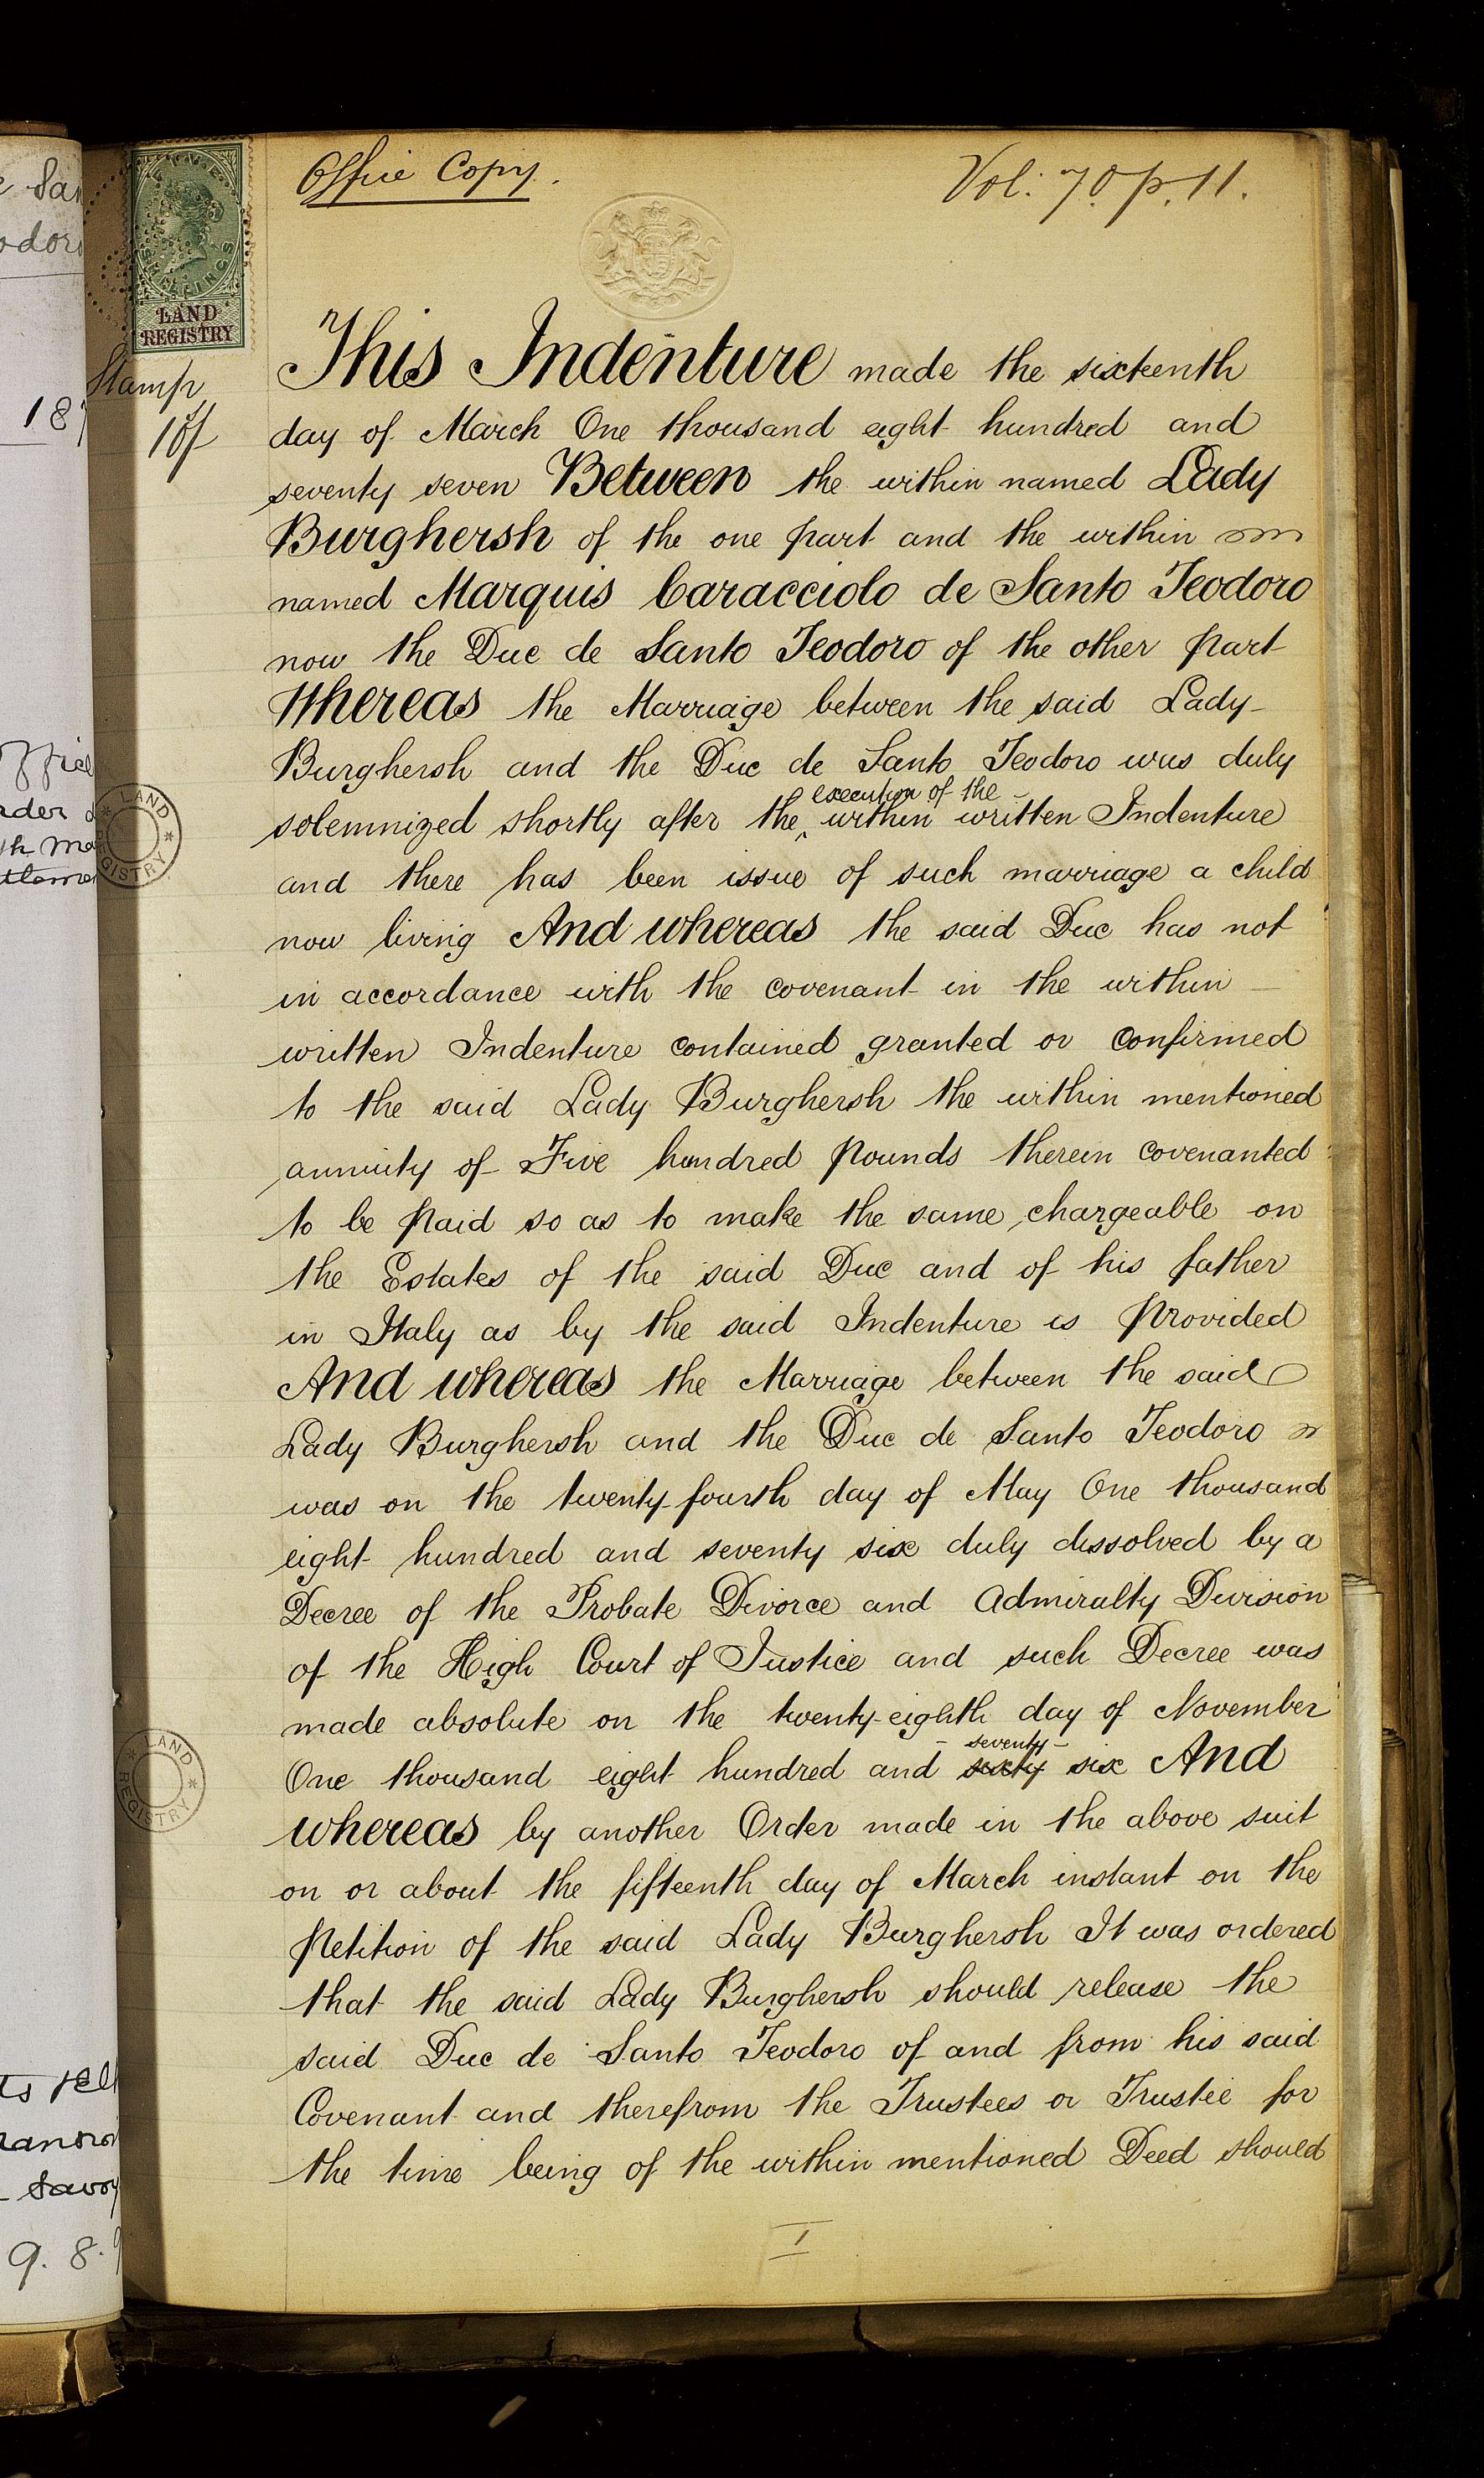 Office Copy.
Vol: 70. p. 11.
LAND
REGISTRY
Stamp
10/
This Indenture made the sixteenth
day of March One thousand eight hundred and
seventy seven Between the within named Lady
Burghersh of the one part and the within
named Marquis Caracciolo de Santo Teodoro
now the Duc de Santo Teodoro of the other part
Whereas the Marriage between the said Lady
Burghersh and the Duc de Santo Teodoro was duly
execution of the
solemnized shortly after the within written Indenture
and there has been issue of such marriage a child
now living And whereas the said Duc has not
in accordance with the covenant in the within
written Indenture contained granted or confirmed
to the said Lady Burghersh the within mentioned
annuity of Five hundred pounds therein covenanted
to be paid so as to make the same chargeable on
the Estates of the said Duc and of his father
in Italy as by the said Indenture is provided
And whereas the Marriage between the said
Lady Burghersh and the Duc de Santo Teodoro
was on the twenty fourth day of May One thousand
eight hundred and seventy six duly dissolved by a
Decree of the Probate Divorce and Admiralty Division
of the High Court of Justice and such Decree was
made absolute on the twenty-eighth day of November
seventy
One thousand eight hundred and sixty six And
whereas by another Order made in the above suit
on or about the fifteenth day of March instant on the
petition of the said Lady Burghersh It was ordered
that the said Lady Burghersh should release the
said Duc de Santo Teodoro of and from his said
Covenant and therefrom the Trustees or Trustee for
the time being of the within mentioned Deed should
1
LAND REGISTRY
LAND REGISTRY
187
9. 8.